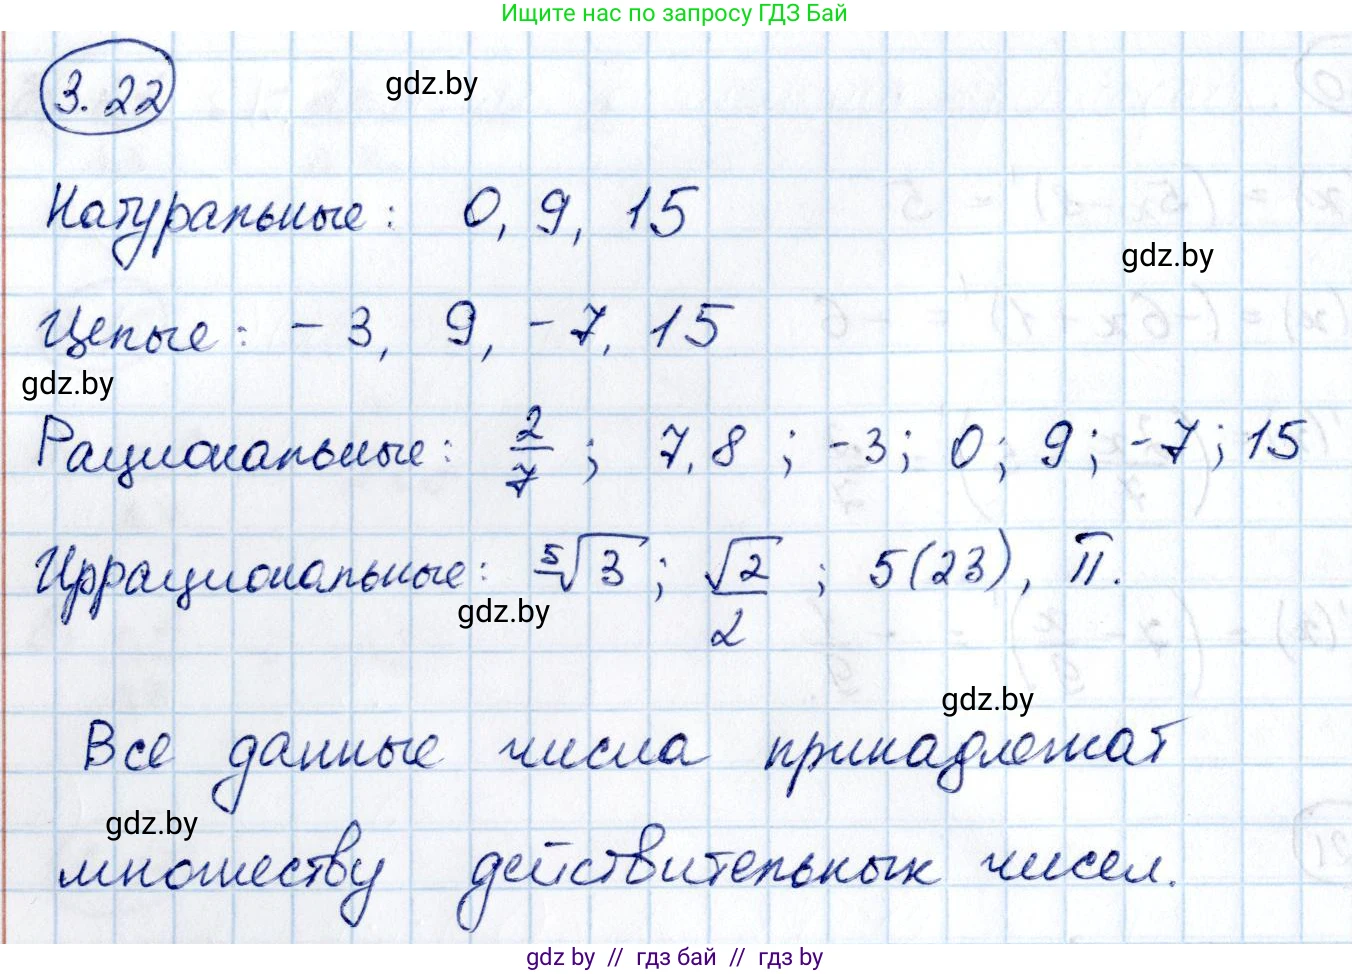 Ищите нас по запросу ГДЗ Бай
3.22
gdz.by
Натуральные: 0, 9, 15
gdz.by
Целые: -3, 9, -7, 15
gdz.by
Рациональные: 2/7; 7,8; -3; 0; 9; -7; 15
Иррациональные: ⁵√3; √2/2; 5(23), π.
gdz.by
gdz.by
Все данные числа принадлежат
gdz.by
множеству действительных чисел.
gdz.by // гдз бай // гдз by